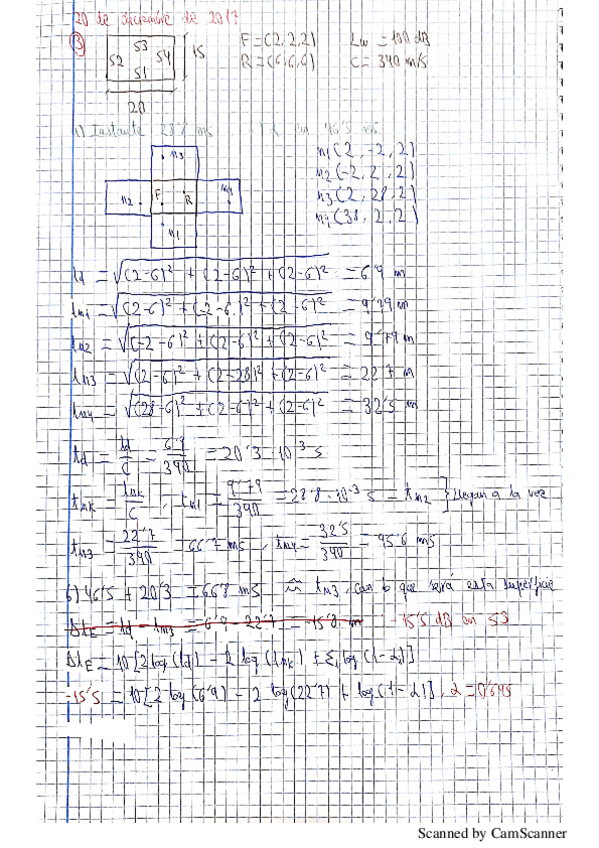 20 de diciembre de 2017
3)
S3
S2 S4
S1
15
20
F=(2,2,2) Lw = 100 dB
R=(6,6,6) C= 340 m/s
Instante 28'8 ms 46'5 ms
m3
m2 F R m4
m1
m1(2,-2,2)
m2(-2,2,2)
m3(2,28,2)
m4(38,2,2)
ld = √(2-6)² + (2-6)² + (2-6)² = 6'9 m
lm1 = √(2-6)² + (-2-6)² + (2-6)² = 9'79 m
lm2 = √(-2-6)² + (2-6)² + (2-6)² = 9'79 m
lm3 = √(2-6)² + (2-28)² + (2-6)² = 22'7 m
lm4 = √(28-6)² + (2-6)² + (2-6)² = 32'5 m
td = ld/C = 6'9/340 = 20'3·10⁻³ s
tmk = lmk/C , tm1 = 9'79/340 = 28'8·10⁻³ s = tm2 } llegan a la vez
tm3 = 22'7/340 = 66'7 ms , tm4 = 32'5/340 = 95'6 ms
b) 46'5 + 20'3 = 66'8 ms ≈ tm3, con lo que será esta superficie
ΔLE = ld - lm3 = 6'9 - 22'7 = -15'8 m -15'5 dB en S3
ΔLE = 10[2log(ld) - 2 log(lmk) + Σ log(1-αi)]
-15'5 = 10[2 log(6'9) - 2 log(22'7) + log(1-α)], α = 0'695
Scanned by CamScanner